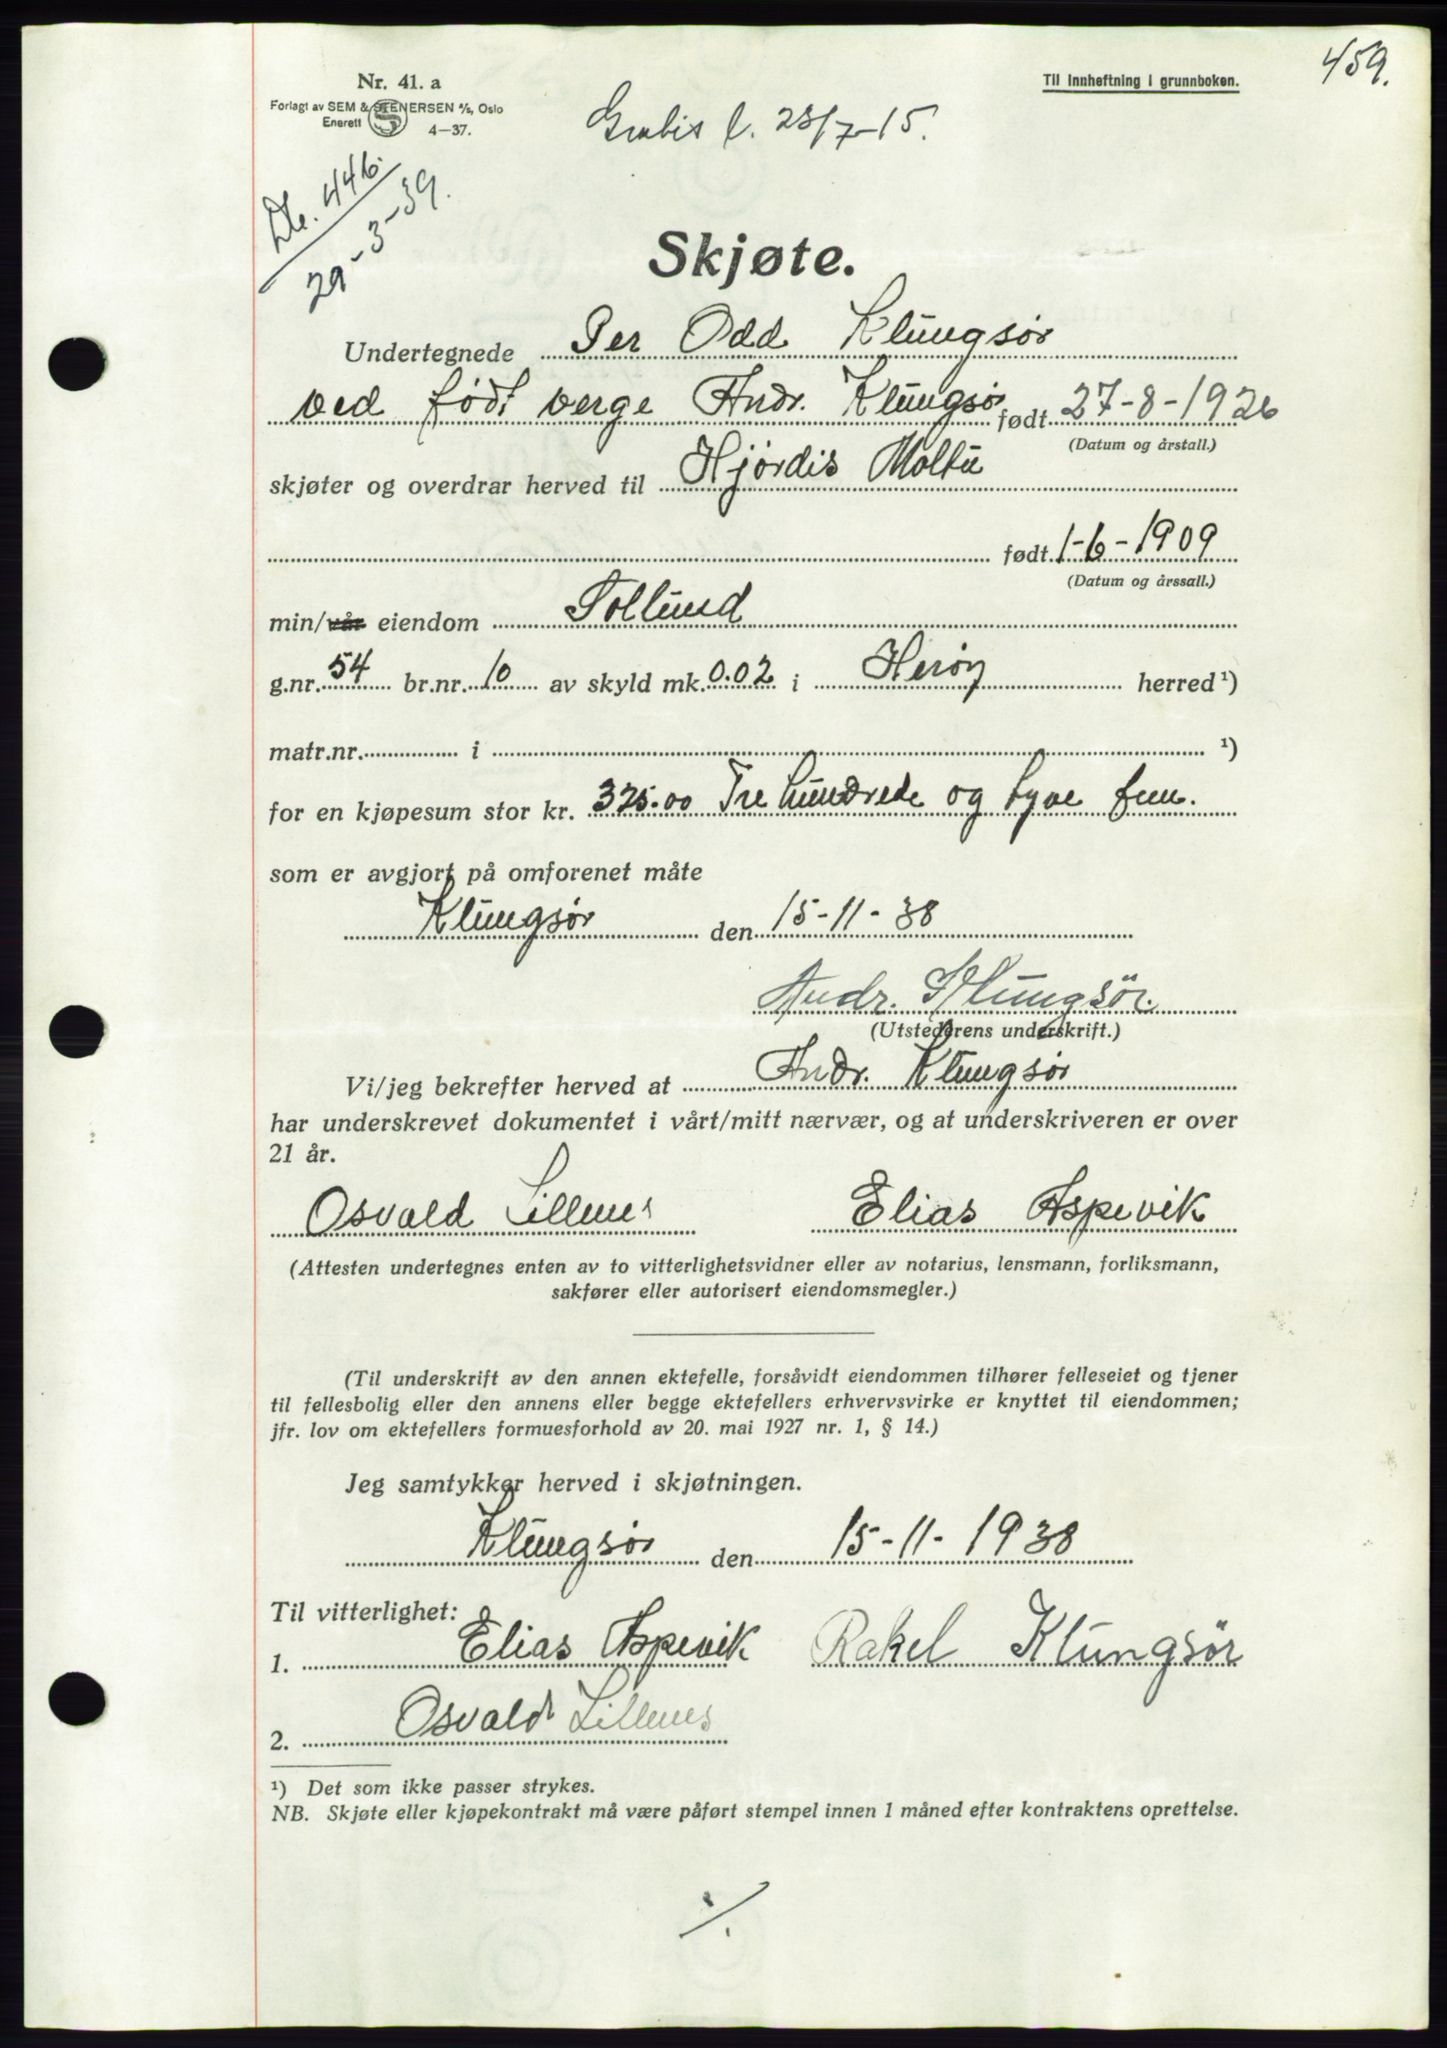 459.
Nr. 41. a
Til innheftning i grunnboken.
Forlagt av SEM & STENERSEN A/S, Oslo
Enerett S 4—37.
l. 28/7-15.
446
29-3-39.
Skjøte.
Undertegnede Per Odd Klungsør
ved født verge Andr. Klungsør født 27-8-1926
(Datum og årstall.)
skjøter og overdrar herved til Hjördis Moltu
født 1-6-1909
(Datum og årssall.)
min/vår eiendom Sollund
g.nr. 54 br.nr. 10 av skyld mk. 0.02 i Herøy herred ¹)
matr.nr. i ¹)
for en kjøpesum stor kr. 325.00 Tre hundrede og tyve fem.
som er avgjort på omforenet måte
Klungsør den 15-11-38
Andr. Klungsör.
(Utstederens underskrift.)
Vi/jeg bekrefter herved at Andr. Klungsør
har underskrevet dokumentet i vårt/mitt nærvær, og at underskriveren er over
21 år.
Osvald Lillenes Elias Aspevik
(Attesten undertegnes enten av to vitterlighetsvidner eller av notarius, lensmann, forliksmann,
sakfører eller autorisert eiendomsmegler.)
(Til underskrift av den annen ektefelle, forsåvidt eiendommen tilhører felleseiet og tjener
til fellesbolig eller den annens eller begge ektefellers erhvervsvirke er knyttet til eiendommen;
jfr. lov om ektefellers formuesforhold av 20. mai 1927 nr. 1, § 14.)
Jeg samtykker herved i skjøtningen.
Klungsør den 15-11-1938
Til vitterlighet:
1. Elias Aspevik Rakel Klungsør
2. Osvald Lillenes
¹) Det som ikke passer strykes.
NB. Skjøte eller kjøpekontrakt må være påført stempel innen 1 måned efter kontraktens oprettelse.
./.